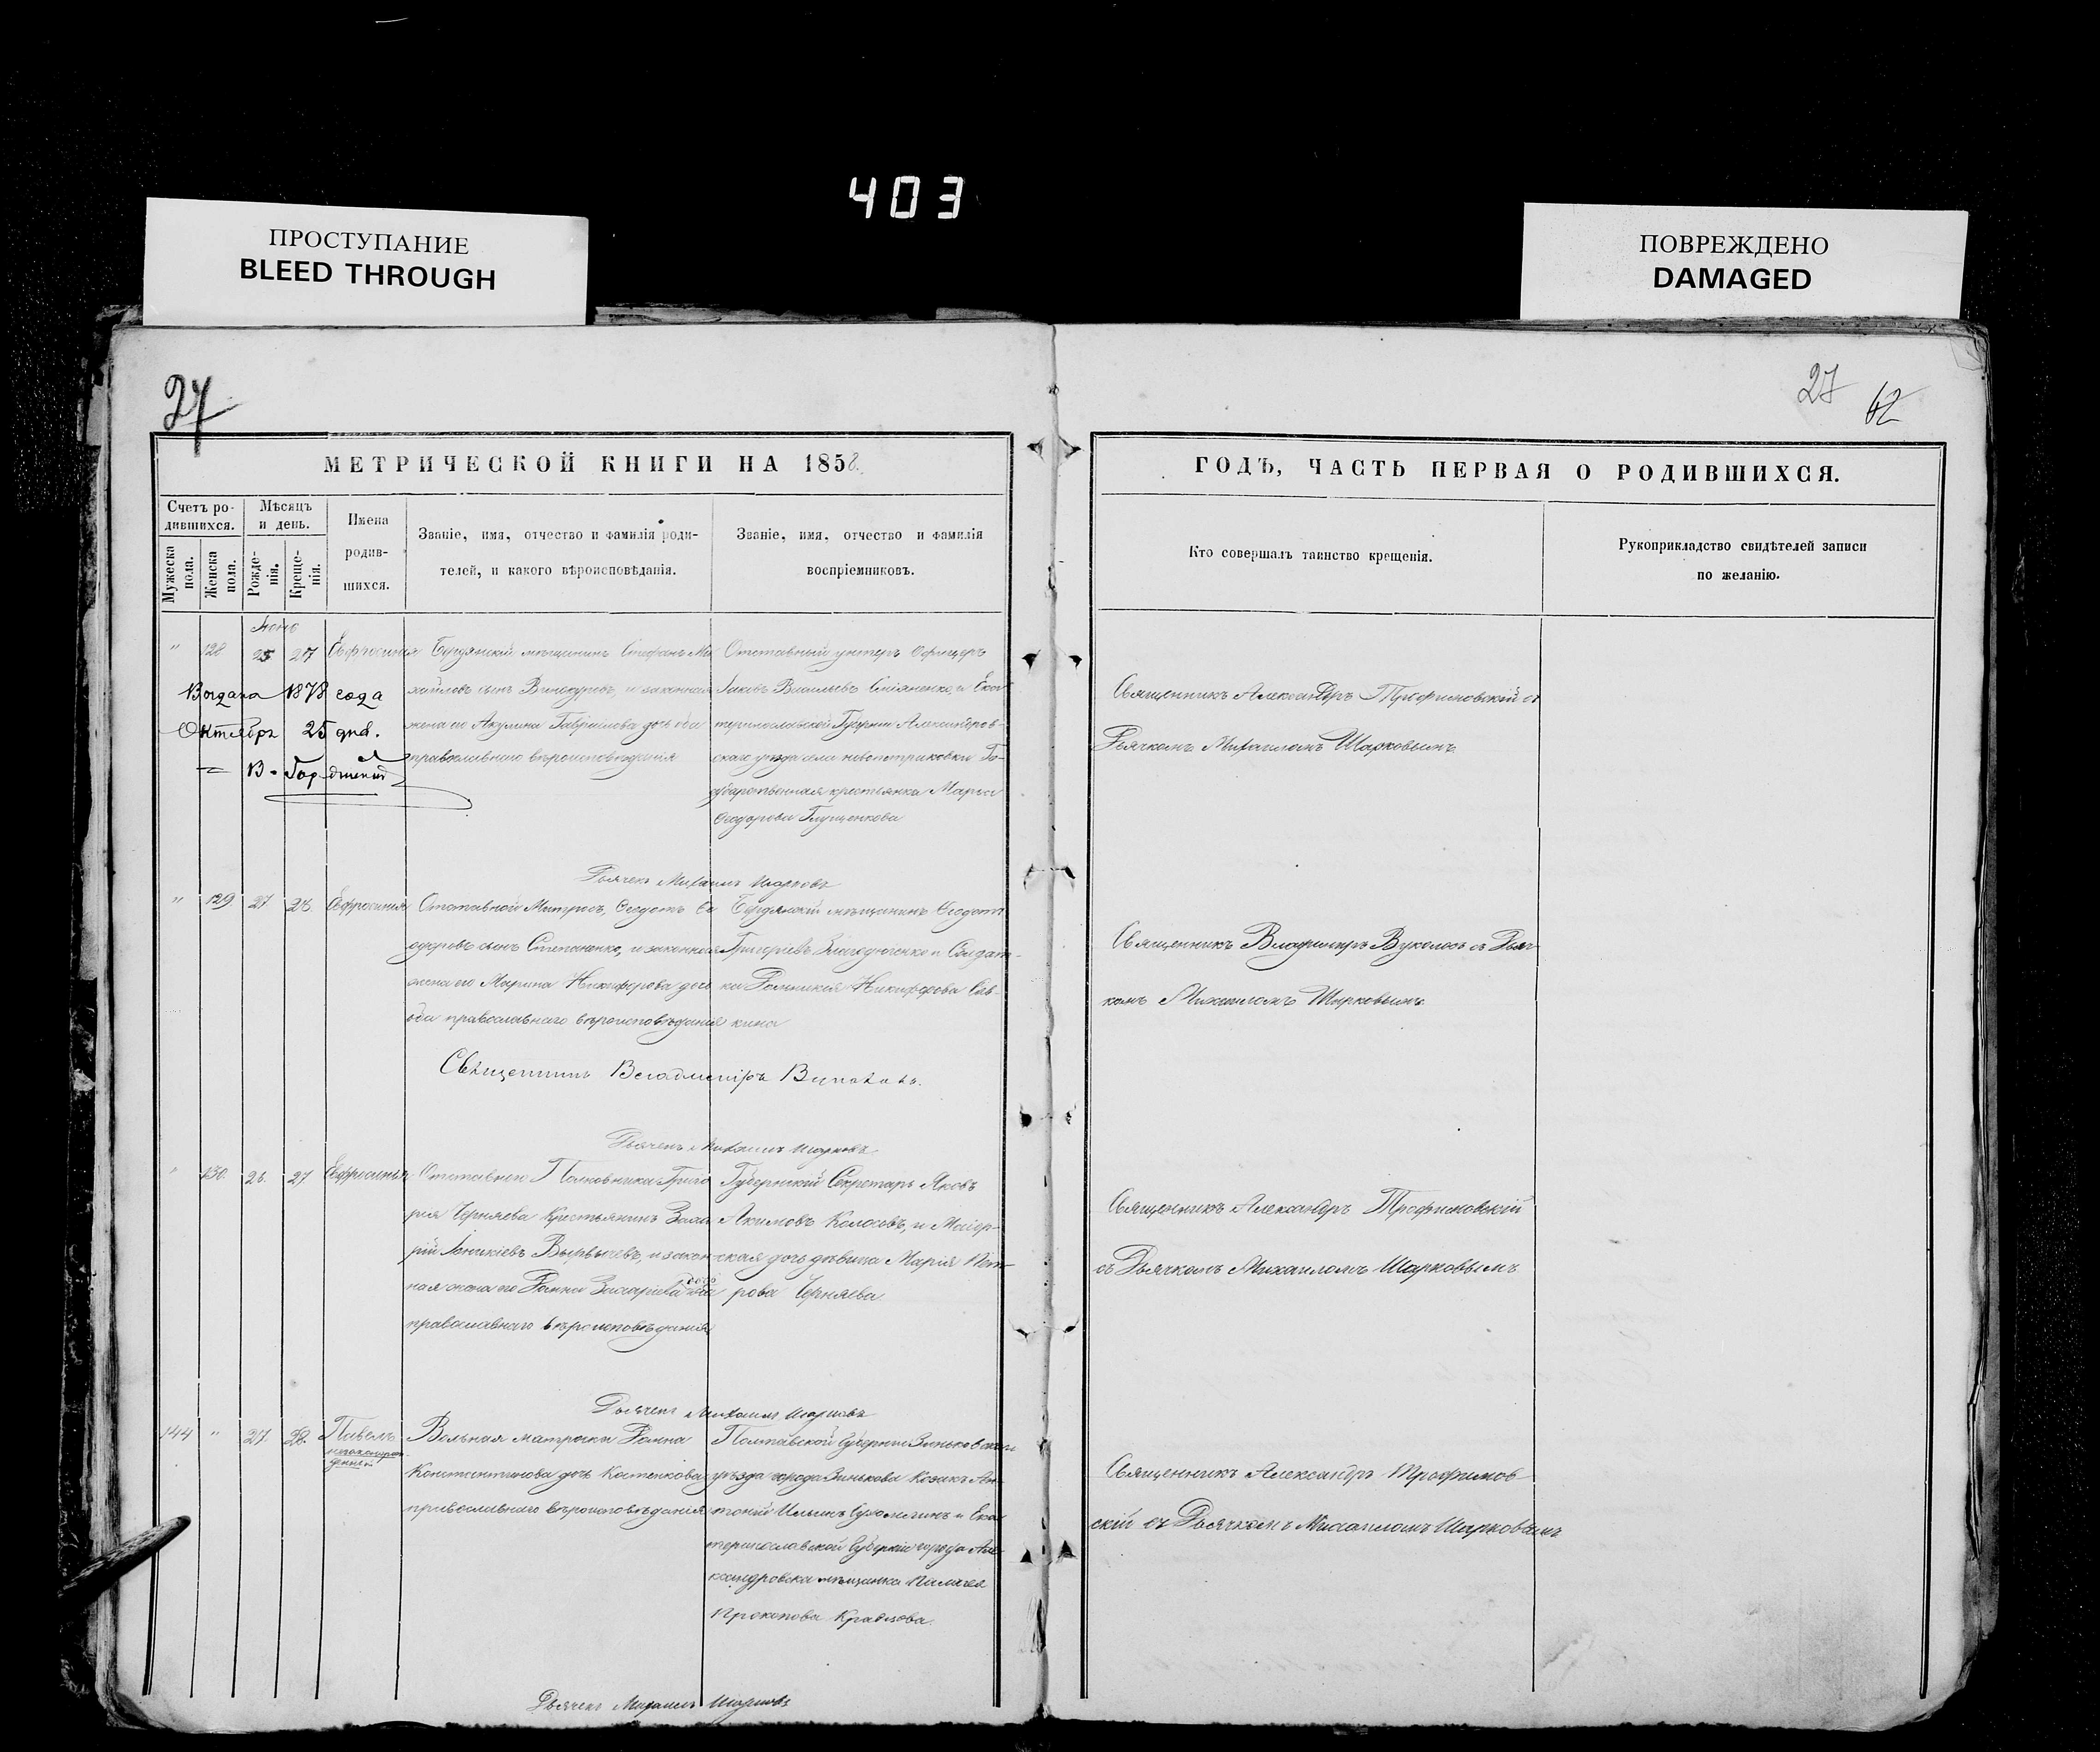 403
ПРОСТУПАНИЕ
BLEED THROUGH
ПОВРЕЖДЕНО
DAMAGED
27
27
62
МЕТРИЧЕСКОЙ КНИГИ НА 1858.
ГОДЪ, ЧАСТЬ ПЕРВАЯ О РОДИВШИХСЯ.
Счетъ ро-
дившихся.
Мужеска
пола.
Женска
пола.
Мѣсяцъ
и день.
Рожде-
нія.
Креще-
нія.
Имена
родив-
шихся.
Званіе, имя, отчество и фамилія роди-
телей, и какого вѣроисповѣданія.
Званіе, имя, отчество и фамилія
воспріемниковъ.
Кто совершалъ таинство крещенія.
Рукоприкладство свидѣтелей записи
по желанію.
" 128 25 27 Евфросинія
Выдана 1878 года
Октября 25 дня.
Бердянскій мѣщанинъ Стефанъ Ми
хайловъ сынъ Винокуровъ, и законная
жена его Акулина Гавріилова дочь оба
православнаго вѣроисповѣданія
Отставный унтеръ Офицеръ
Іаковъ Васильевъ и Ека
теринославской Губерніи Александров-
скаго уѣзда села Го-
сударственная крестьянка Марѳа
Ѳеодорова Глущенкова
Священникъ Александръ Трофимовскій съ
Дьячкомъ Михаиломъ Шарковымъ
Дьячекъ Михаилъ Шарковъ
" 129 27 28 Евфросинія
Отставной Матросъ, Ѳеодотъ Ѳе
одоровъ сынъ Степаненко, и законная
жена его Марина Никифорова дочь
оба православнаго вѣроисповѣданія
Бердянскій мѣщанинъ Ѳеодотъ
Григорьевъ и Солдат-
ка Никифорова Сав-
кина
Священникъ Владимиръ Вуколовъ съ Дьяч-
комъ Михаиломъ Шарковымъ
Священникъ Владимиръ Вуколовъ.
Дьячекъ Михаилъ Шарковъ
" 130 26 27 Евфросинія
Отставнаго Полковника Григо
рія Черняева Крестьянинъ Заха
рій Іоникіевъ Вырвычевъ, и закон-
ная жена его Захаріева оба
православнаго вѣроисповѣданія
Губернскій Секретарь Яковъ
Акимовъ Колосовъ, и Маіор-
ская дочь дѣвица Марія Пет-
рова Черняева
Священникъ Александръ Трофимовскій
съ Дьячкомъ Михаиломъ Шарковымъ
Дьячекъ Михаилъ Шарковъ
144 " 27 28 Павелъ
незаконорож-
денный
Вольная матроска
Константинова дочь Костенкова
православнаго вѣроисповѣданія
Полтавской Губерніи Зиньковскаго
уѣзда города Зинькова Козакъ Ан-
тоній Ильинъ и Ека
теринославской Губерніи города Але
ксандровска мѣщанка Пелагея
Прокопова Кравцова.
Священникъ Александръ Трофимов-
скій съ Дьячкомъ Михаиломъ Шарковымъ
Дьячекъ Михаилъ Шарковъ